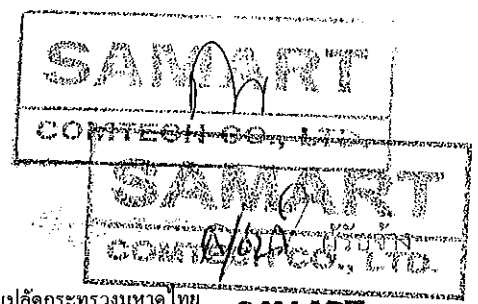 SAMART
COMTECH CO., LTD.
SAMART
ผู้รับจ้าง
COMTECH CO., LTD.
ปลัดกระทรวงมหาดไทย
SAMART